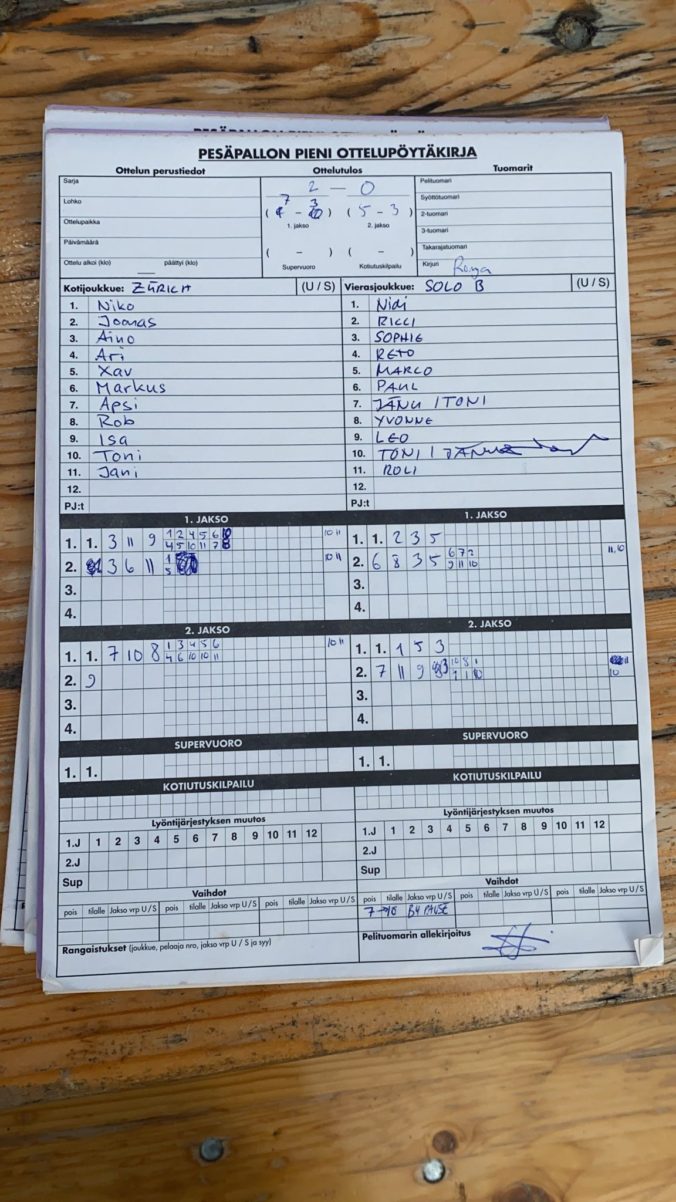 PESÄPALLON PIENI OTTELUPÖYTÄKIRJA
Ottelun perustiedot Ottelutulos Tuomarit
Sarja
Lohko
Ottelupaikka
Päivämäärä
Ottelu alkoi (klo) päättyi (klo)
2 – 0
7 3
( – ) ( 5 – 3 )
1. jakso 2. jakso
( – ) ( – )
Supervuoro Kotiutuskilpailu
Pelituomari
Syöttötuomari
2-tuomari
3-tuomari
Takarajatuomari
Kirjuri
Kotijoukkue: ZÜRICH (U / S)
1. Niko
2. Joonas
3. Aino
4. Ari
5. Xav
6. Markus
7. Apsi
8. Rob
9. Isa
10. Toni
11. Jani
12.
PJ:t
Vierasjoukkue: SOLO B (U / S)
1. Nidi
2. RICCI
3. SOPHIE
4. RETO
5. MARCO
6. PAUL
7. JÄNU / TONI
8. YVONNE
9. LEO
10. TONI / JÄNU
11. ROLI
12.
PJ:t
1. JAKSO
1. 1. 3 11 9 1 2 4 5 6 10 11
4 5 10 11 7 8
2. 3 6 11 1 10 11
5
3.
4.
1. JAKSO
1. 1. 2 3 5
2. 6 8 3 5 6 7 2 11, 10
9 11 10
3.
4.
2. JAKSO
1. 1. 7 10 8 1 3 4 5 6 10 11
4 6 10 10 11
2. 9
3.
4.
2. JAKSO
1. 1. 1 5 3
2. 7 11 9 3 10 8 1 11
1 1 10 10
3.
4.
SUPERVUORO
1. 1.
SUPERVUORO
1. 1.
KOTIUTUSKILPAILU
KOTIUTUSKILPAILU
Lyöntijärjestyksen muutos
1.J 1 2 3 4 5 6 7 8 9 10 11 12
2.J
Sup
Lyöntijärjestyksen muutos
1.J 1 2 3 4 5 6 7 8 9 10 11 12
2.J
Sup
Vaihdot
pois tilalle Jakso vrp U / S pois tilalle Jakso vrp U / S pois tilalle Jakso vrp U / S
Vaihdot
pois tilalle Jakso vrp U / S pois tilalle Jakso vrp U / S pois tilalle Jakso vrp U / S
7 → 10 PAUSE
Rangaistukset (joukkue, pelaaja nro, jakso vrp U / S ja syy)
Pelituomarin allekirjoitus